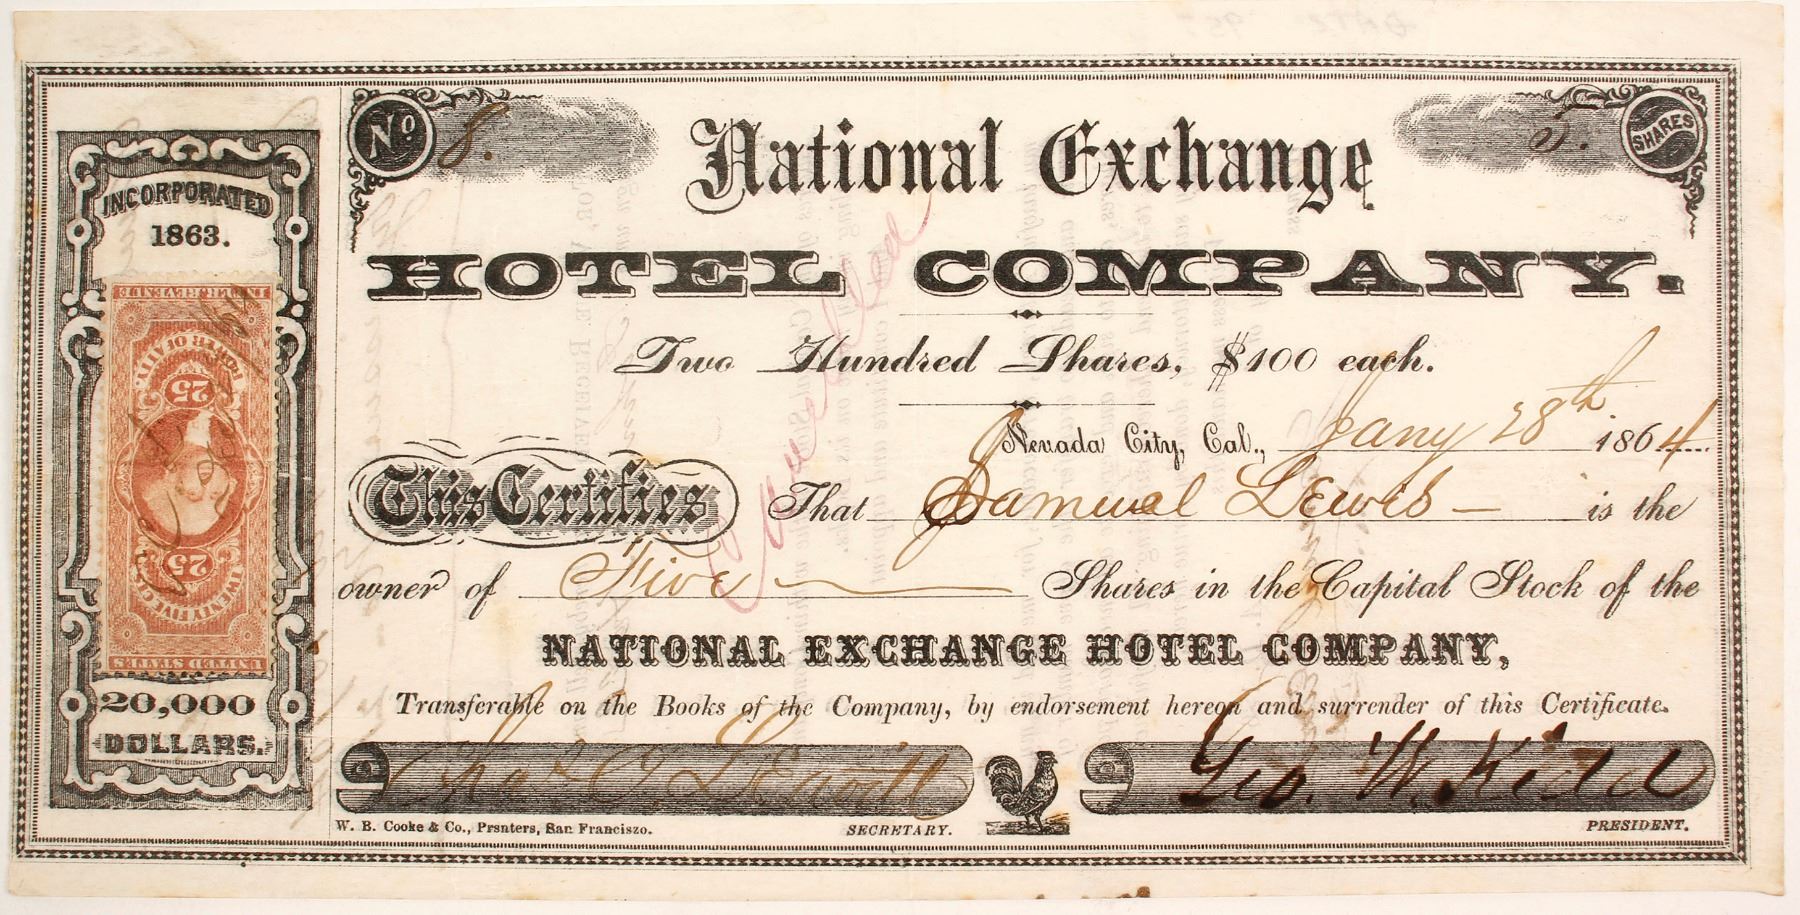 No 8.
5. SHARES
National Exchange
HOTEL COMPANY.
Two Hundred Shares, $100 each.
Nevada City, Cal., Jany 28th 1864
This Certifies That Samuel Lewis is the
owner of Five Shares in the Capital Stock of the
NATIONAL EXCHANGE HOTEL COMPANY,
Transferable on the Books of the Company, by endorsement hereon and surrender of this Certificate.
Geo. W. Kidd
W. B. Cooke & Co., Prsnters, San Franciszo.
SECRETARY.
PRESIDENT.
INCORPORATED
1863.
UNITED STATES
TWENTY FIVE CTS.
25
25
POWER OF ATTY.
INTER. REVENUE
20,000
DOLLARS.
Cancelled